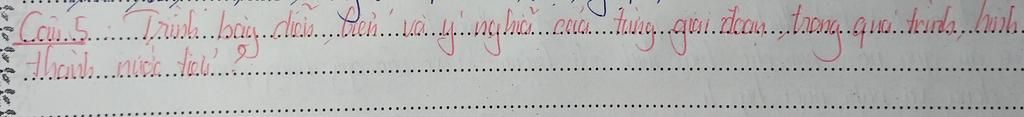 Câu 5: Trình bày diễn biến và ý nghĩa của từng giai đoạn trong quá trình hình
thành nước tiểu?